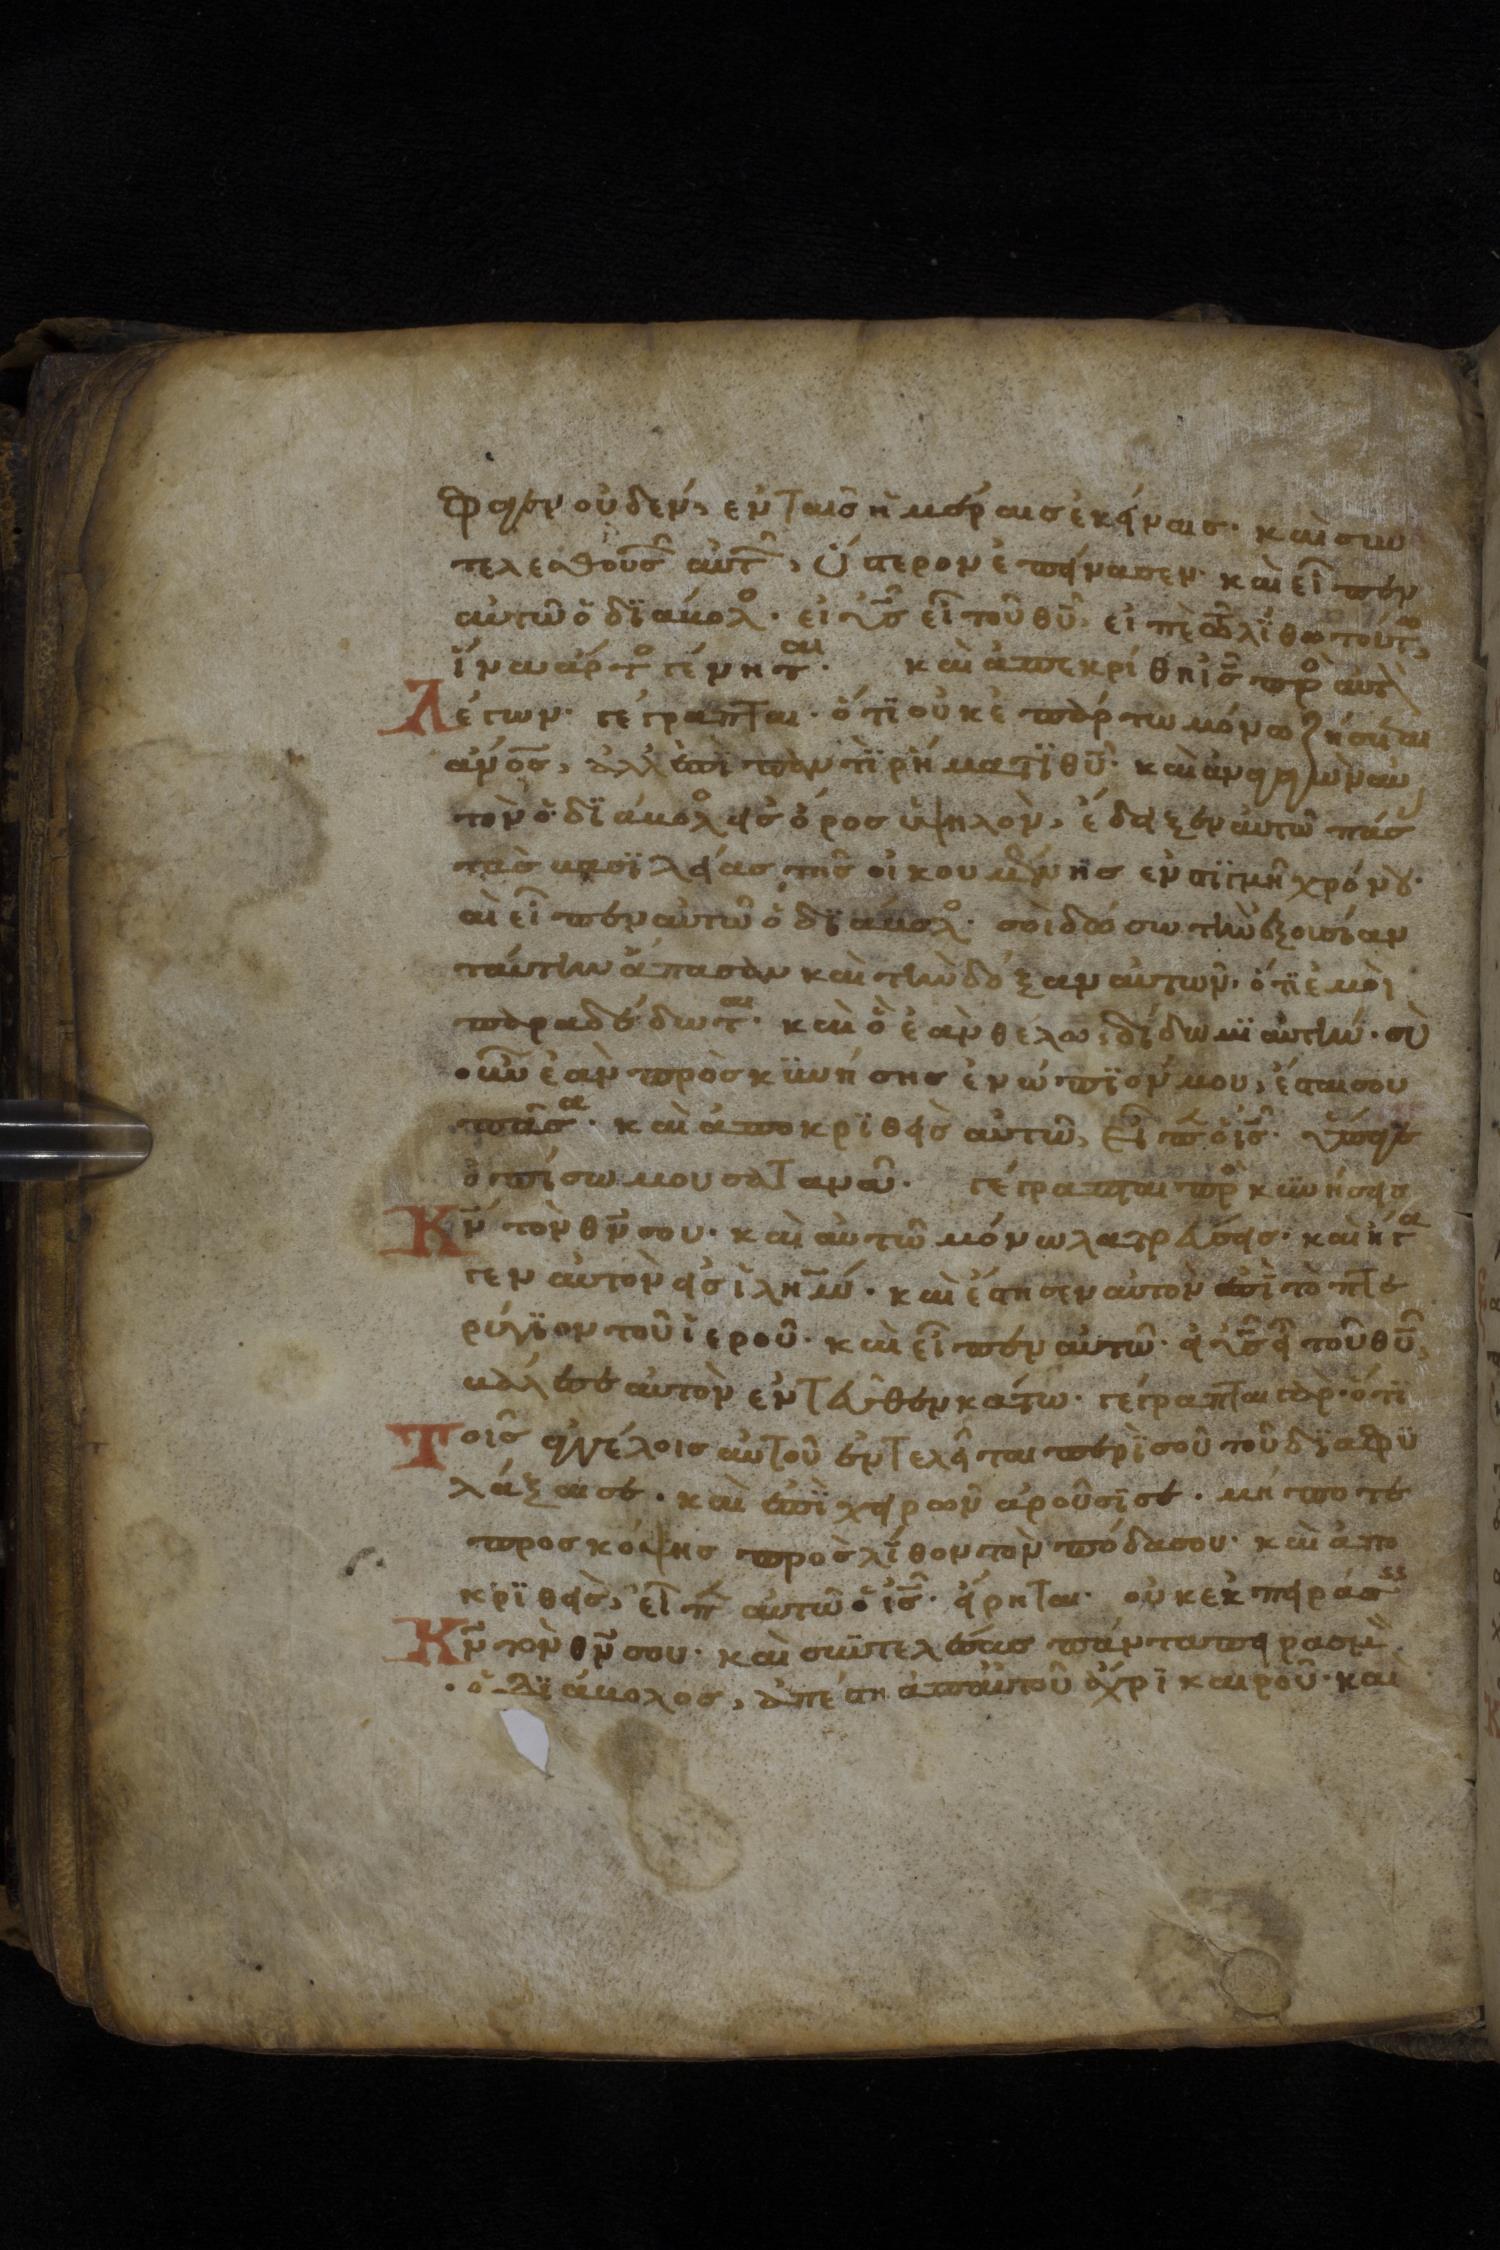 φαγεν οὐδέν, εν ταισ ἡμέραισ ἐκείναισ· και συν
τελεσθουσ̑ αὐτ̑, ὕστερον ἐπείνασεν· και εἶπεν
αυτῶ ὁ διάβολ· εἰ υσ̅ εἶ τοῦ θυ̅, εἰπὲ τῶ λίθω τούτ,
ἵνα ἄρτ γένητ· και ἀπεκρίθη ισ̅ πρ αὐτ
Λέγων· γέγραπται· ὅτι οὐκ ἐπ ἄρτω μόνω ζήσεται
ἄνοσ̅, ἀλλ ἐπὶ παντὶ ρήματι θυ̅· και ἀναγαγὼν αυ
τὸν ὁ διάβολ εἰσ ὄροσ ὑψηλὸν, ἔδειξεν αυτῶ πάσ
τὰσ βασιλείασ τῆσ οἰκουμένησ εν στιγμῆ χρόνου·
αὶ εἶπεν αὐτῶ ὁ διάβολ· σοὶ δώσω τὴν ἐξουσίαν
ταύτην ἅπασαν και τὴν δόξαν αυτῶν· ὅτι ἐμοὶ
παραδέδωτ· και ὃ ἐὰν θέλω, δίδωμι αὐτήν· σὺ
οὖν ἐὰν πρὸσκυνήσησ ἐνώπιόν μου, ἔσται σου
πᾶσα· και ἀποκριθεὶσ αὐτῶ, εἶπ ὁ ισ̅· ὕπαγε
ὀπίσω μου σαταναῦ· γέγραπται πρκυνήσεισ
Κν̅ τὸν θν̅ σου· και αὐτῶ μόνω λατρεύσεισ· και ἤγα
γεν αυτὸν εἰσ ιλημ̅· και ἔστησεν αυτὸν ἐπὶ τὸ πτε
ρύγιον τοῦ ἱεροῦ· και εἶπεν αυτῶ· εἰ υσ̅ εἶ τοῦ θυ̅,
βάλε σε αυτὸν εντεῦθεν κάτω· γέγραπται γὰρ· ὅτι
Τοισ ἀγγέλοισ αυτοῦ ἐντελεῖται περὶ σοῦ τοῦ διαφυ
λάξαι σε· και ἐπὶ χειρῶν ἀροῦσί σε· μήποτε
προσκόψησ πρὸσ λίθον τὸν πόδα σου· και ἀπο
κριθεὶσ, εἶπ αυτῶ ὁ ισ̅· εἴρηται· οὐκ εκπειράσ
Κν̅ τὸν θν̅ σου· και συντελέσασ πάντα πειρασμὸ
ὁ διάβολοσ, ἀπέστη ἀπ αὐτοῦ ἄχρι καιροῦ· και